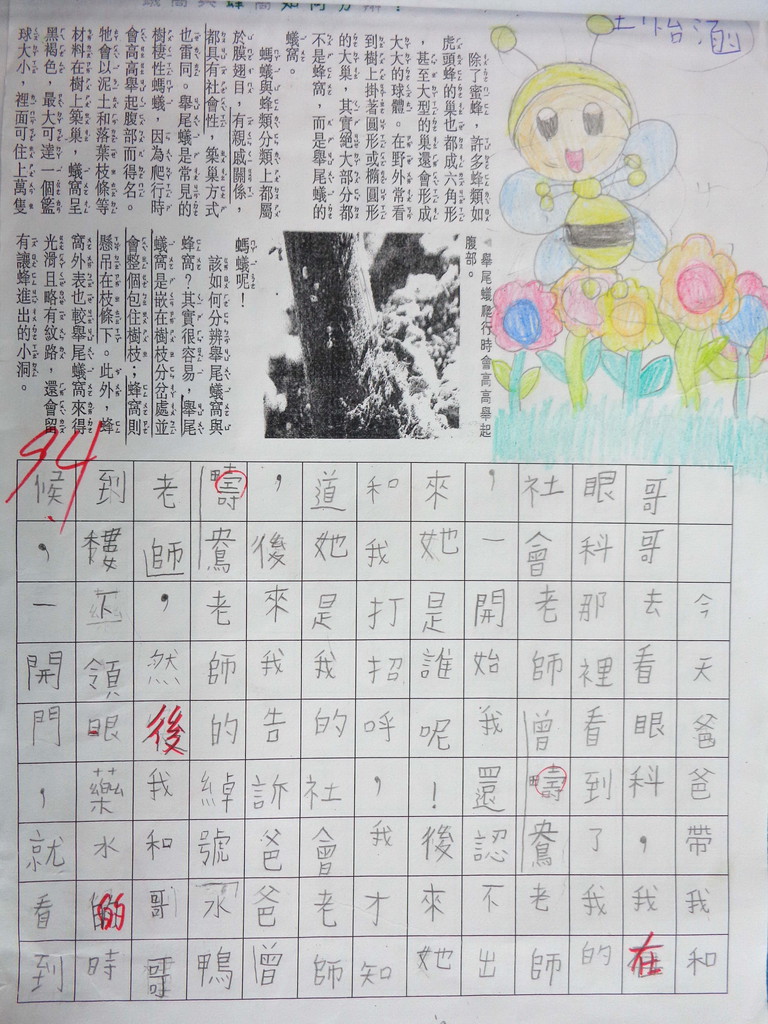 蟻窩與蜂窩如何分辨？
除了蜜蜂，許多蜂類如
虎頭蜂的巢也都成六角形
，甚至大型的巢還會形成
大大的球體。在野外常看
到樹上掛著圓形或橢圓形
的大巢，其實絕大部分都
不是蜂窩，而是舉尾蟻的
蟻窩。
螞蟻與蜂類分類上都屬
於膜翅目，有親戚關係，
都具有社會性，築巢方式
也雷同。舉尾蟻是常見的
樹棲性螞蟻，因為爬行時
會高高舉起腹部而得名。
牠會以泥土和落葉枝條等
材料在樹上築巢，蟻窩呈
黑褐色，最大可達一個籃
球大小，裡面可住上萬隻
螞蟻呢！
該如何分辨舉尾蟻窩與
蜂窩？其實很容易，舉尾
蟻窩是嵌在樹枝分岔處並
會整個包住樹枝；蜂窩則
懸吊在枝條下。此外，蜂
窩外表也較舉尾蟻窩來得
光滑且略有紋路，還會留
有讓蜂進出的小洞。
舉尾蟻爬行時會高高舉起
腹部。
王怡涵
94
今天爸爸帶我和
哥哥去看眼科，我在
眼科那裡看到了我的
社會老師曾疇鴦老師
，一開始我還認不出
來她是誰呢！後來她
和我打招呼，我才知
道她是我的社會老師
，後來我告訴爸爸曾
疇鴦老師的綽號鴨
老師，然後我和哥哥
到樓下領眼藥水的時
候，一開門，就看到